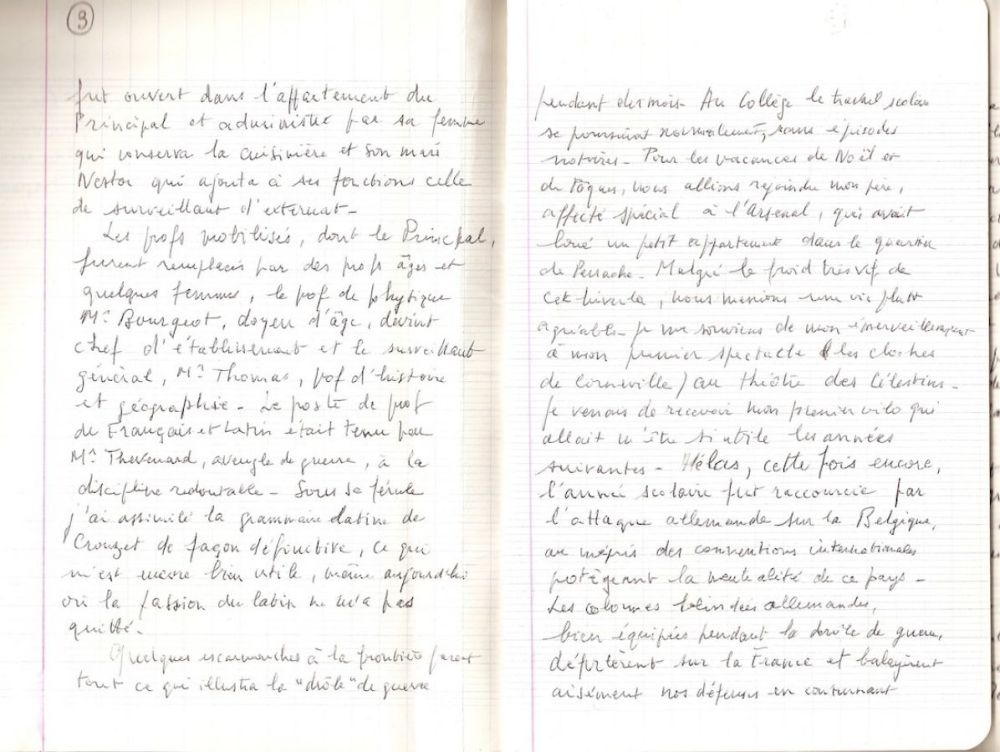 3
fut ouvert dans l'appartement du
Principal et administré par sa femme
qui conserva la cuisinière et son mari
Nestor qui ajouta à ses fonctions celle
de surveillant d'externat-
Les profs mobilisés, dont le Principal,
furent remplacés par des profs âgés et
quelques femmes, le prof de physique
Mr Bourgeot, doyen d'âge, devint
chef d'établissement et le surveillant
général, Mr Thomas, prof d'histoire
et géographie- Le poste de prof
de Français et Latin était tenu par
Mr Thevenard, aveugle de guerre, à la
discipline redoutable- Sous sa férule
j'ai assimilé la grammaire latine de
Crouzet de façon définitive, ce qui
m'est encore bien utile, même aujourd'hui
où la passion du latin ne m'a pas
quitté-
Quelques escarmouches à la frontière furent
tout ce qui illustra la "drôle" de guerre
pendant des mois- Au Collège le travail scolaire
se poursuivit normalement, sans épisodes
notoires- Pour les vacances de Noël et
de Pâques, nous allions rejoindre mon père,
affecté spécial à l'Arsenal, qui avait
loué un petit appartement dans le quartier
de Perrache- Malgré le froid très vif de
cet hiver là, nous menions une vie plutôt
agréable- Je me souviens de mon émerveillement
à mon premier spectacle (les cloches
de Corneville) au théâtre des Célestins-
Je venais de recevoir mon premier vélo qui
allait m'être si utile les années
suivantes- Hélas, cette fois encore,
l'année scolaire fut raccourcie par
l'attaque allemande sur la Belgique,
au mépris des conventions internationales
protégeant la neutralité de ce pays-
Les colonnes blindées allemandes,
bien équipées pendant la drôle de guerre,
déferlèrent sur la France et balayèrent
aisément nos défenses en contournant